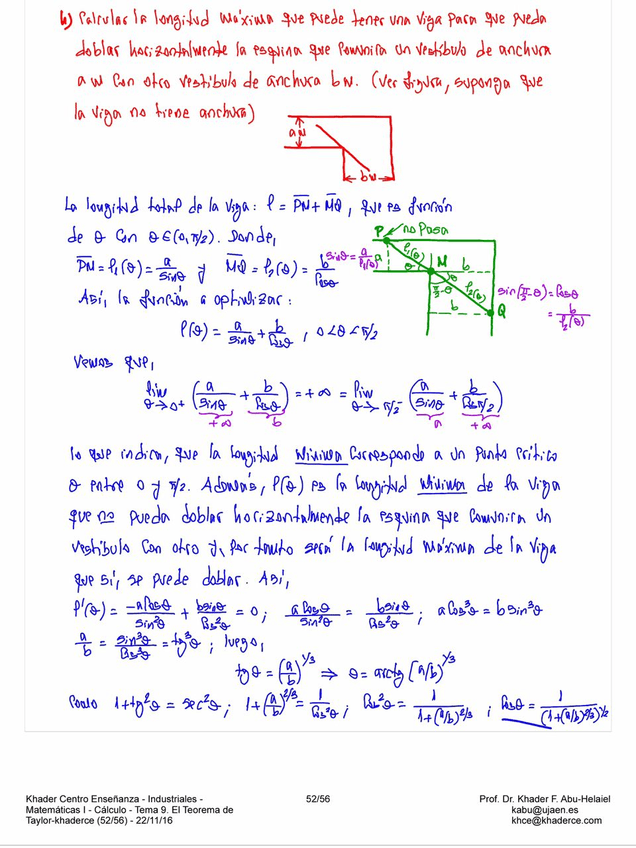 h) Calcular la longitud máxima que puede tener una viga para que pueda
doblar horizontalmente la esquina que comunica un vestíbulo de anchura
a m con otro vestíbulo de anchura b m. (Ver figura, suponga que
la viga no tiene anchura)
a m
b m
La longitud total de la viga: l = PM + MQ, que es función
de θ con θ∈(0,π/2). Donde,
P no pasa
PM = l₁(θ) = a/sinθ y MQ = l₂(θ) = b/cosθ
sinθ = a/l₁(θ)
a
l₁(θ)
θ
M
b
θ
π/2-θ
l₂(θ)
b
Q
sin(π/2-θ) = cosθ
= b/l₂(θ)
Así, la función a optimizar:
l(θ) = a/sinθ + b/cosθ, 0<θ<π/2
Vemos que,
lim θ→0+ (a/sinθ + b/cosθ) = +∞ = lim θ→π/2- (a/sinθ + b/cosπ/2)
+∞ b a +∞
lo que indica, que la longitud mínima corresponde a un punto crítico
θ entre 0 y π/2. Además, l(θ) es la longitud mínima de la viga
que no pueda doblar horizontalmente la esquina que comunica un
vestíbulo con otro y, por tanto será la longitud máxima de la viga
que sí, se puede doblar. Así,
l'(θ) = -a cosθ/sin²θ + b sinθ/cos²θ = 0; a cosθ/sin²θ = b sinθ/cos²θ; a cos³θ = b sin³θ
a/b = sin³θ/cos³θ = tg³θ; luego,
tgθ = (a/b)^1/3 ⇒ θ = arctg[a/b]^1/3
Como 1+tg²θ = sec²θ; 1+(a/b)^2/3 = 1/cos²θ; cos²θ = 1/(1+(a/b)^2/3); cosθ = 1/(1+(a/b)^2/3)^1/2
Khader Centro Enseñanza - Industriales -
Matemáticas I - Cálculo - Tema 9. El Teorema de
Taylor-khaderce (52/56) - 22/11/16
52/56
Prof. Dr. Khader F. Abu-Helaiel
kabu@ujaen.es
khce@khaderce.com